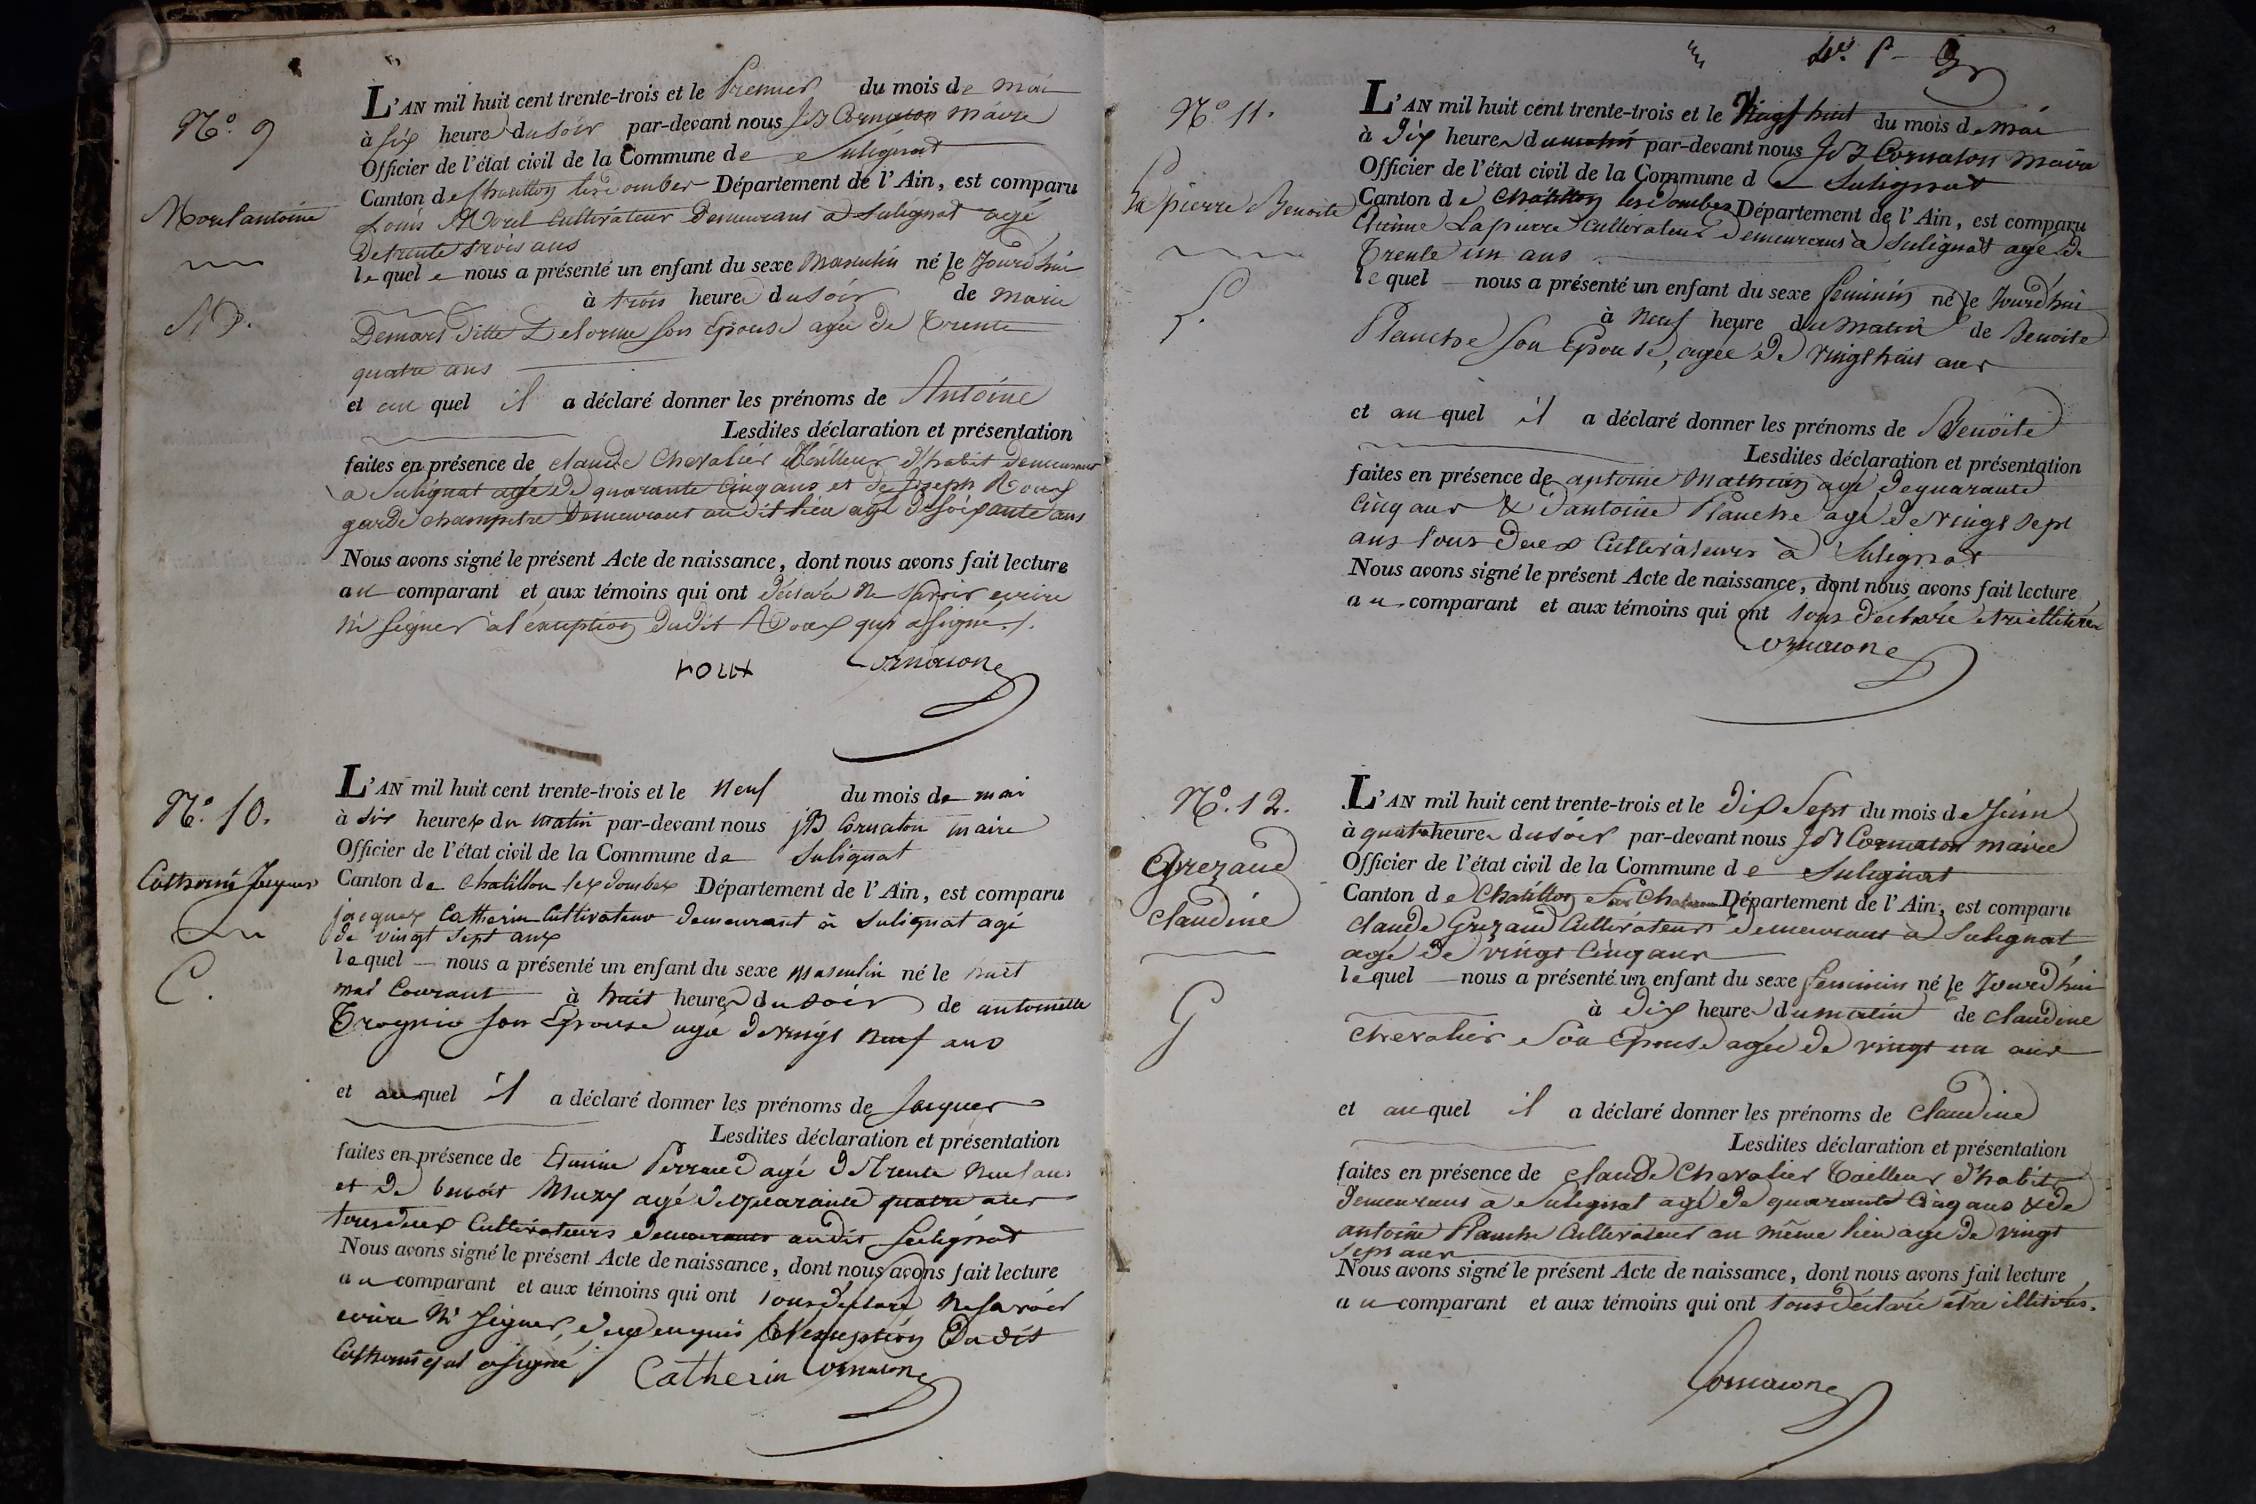 N° 9
Morel antoine
L'AN mil huit cent trente-trois et le Premier du mois de mai
à six heure du soir par-devant nous JB Cornaton maire
Officier de l'état civil de la Commune de Sulignat
Canton de Chatillon les Dombes Département de l'Ain, est comparu
Louis Morel Cultivateur Demeurant à Sulignat agé
De trente trois ans
lequel nous a présenté un enfant du sexe Masculin né le Jourd'hui
à trois heure du soir de marie
Demars ditte Delorme son Epouse agée de Trente
quatre ans
et au quel il a déclaré donner les prénoms de Antoine
Lesdites déclaration et présentation
faites en présence de claude Chevalier tailleur d'habit demeurant
a Sulignat agé de quarante cinq ans et de Joseph Roux
garde champetre Demeurant au dit lieu agé de soixante ans
Nous avons signé le présent Acte de naissance, dont nous avons fait lecture
au comparant et aux témoins qui ont déclaré ne savoir ecrire
ni signer à l'exception dudit Roux qui a signé ./.
roux Cornaton
N° 10.
Catherin Jacques
C.
L'AN mil huit cent trente-trois et le neuf du mois de mai
à six heures du matin par-devant nous jB Cornaton maire
Officier de l'état civil de la Commune de Sulignat
Canton de Chatillon les dombes Département de l'Ain, est comparu
jacques Catherin Cultivateur demeurant à Sulignat agé
de vingt sept ans
lequel nous a présenté un enfant du sexe masculin né le huit
mai Courant à huit heure du soir de antoinette
son Epouse agée de vingt neuf ans
et au quel il a déclaré donner les prénoms de Jacques
Lesdites déclaration et présentation
faites en présence de Etienne Perraud agé de trente neuf ans
et de benoit Muzy agé de quarante quatre ans
tous deux Cultivateurs demeurants audit Sulignat
Nous avons signé le présent Acte de naissance, dont nous avons fait lecture
au comparant et aux témoins qui ont tous déclaré ne savoir
ecrire ni signer, de ce enquis à l'exception Dudit
Catherin qui a signé ./.
Catherin Cornaton
N° 11.
Lapierre Benoite
L.
L'AN mil huit cent trente-trois et le Vingt huit du mois de mai
à Dix heure du matin par-devant nous JB Cornaton maire
Officier de l'état civil de la Commune de Sulignat
Canton de Chatillon les Dombes Département de l'Ain, est comparu
Etienne Lapierre Cultivateur Demeurant à Sulignat agé de
Trente un ans
lequel nous a présenté un enfant du sexe feminin né le Jourd'hui
à Neuf heure du Matin de Benoite
Planche son Epouse, agée de vingt huit ans
et au quel il a déclaré donner les prénoms de Benoite
Lesdites déclaration et présentation
faites en présence de antoine Mathieu agé de quarante
cinq ans & d'antoine Planche agé de vingt sept
ans tous deux Cultivateurs à Sulignat
Nous avons signé le présent Acte de naissance, dont nous avons fait lecture
au comparant et aux témoins qui ont tous déclaré etre illitérés
Cornaton
N° 12.
Grezaud
claudine
G
L'AN mil huit cent trente-trois et le dix Sept du mois de Juin
à quatre heure du soir par-devant nous JB Cornaton maire
Officier de l'état civil de la Commune de Sulignat
Canton de Chatillon sur Chalaronne Département de l'Ain, est comparu
claude Grezaud Cultivateur demeurant à Sulignat
agé de vingt Cinq ans
lequel nous a présenté un enfant du sexe feminin né le Jourd'hui
à dix heure du matin de claudine
chevalier son Epouse agée de vingt un ans
et au quel il a déclaré donner les prénoms de claudine
Lesdites déclaration et présentation
faites en présence de claude Chevalier Tailleur d'habit
demeurant à Sulignat agé de quarante Cinq ans & de
antoine Planche Cultivateur au même lieu agé de vingt
Sept ans
Nous avons signé le présent Acte de naissance, dont nous avons fait lecture
au comparant et aux témoins qui ont tous déclaré etre illitérés.
Cornaton